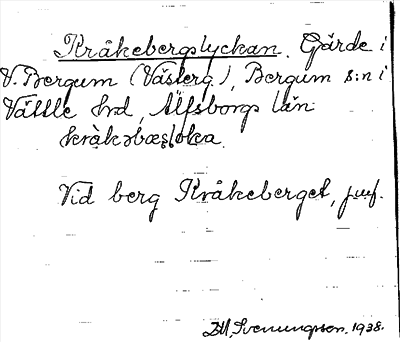 Kråkebergslyckan. Gärde i
V. Bergum (Västerg.), Bergum s:n i
Vättle hd, Älfsborgs län
kràkəbæṣlo̵ka.
Vid berg Kråkeberget, juf.
D.H. Svenungsson. 1938.